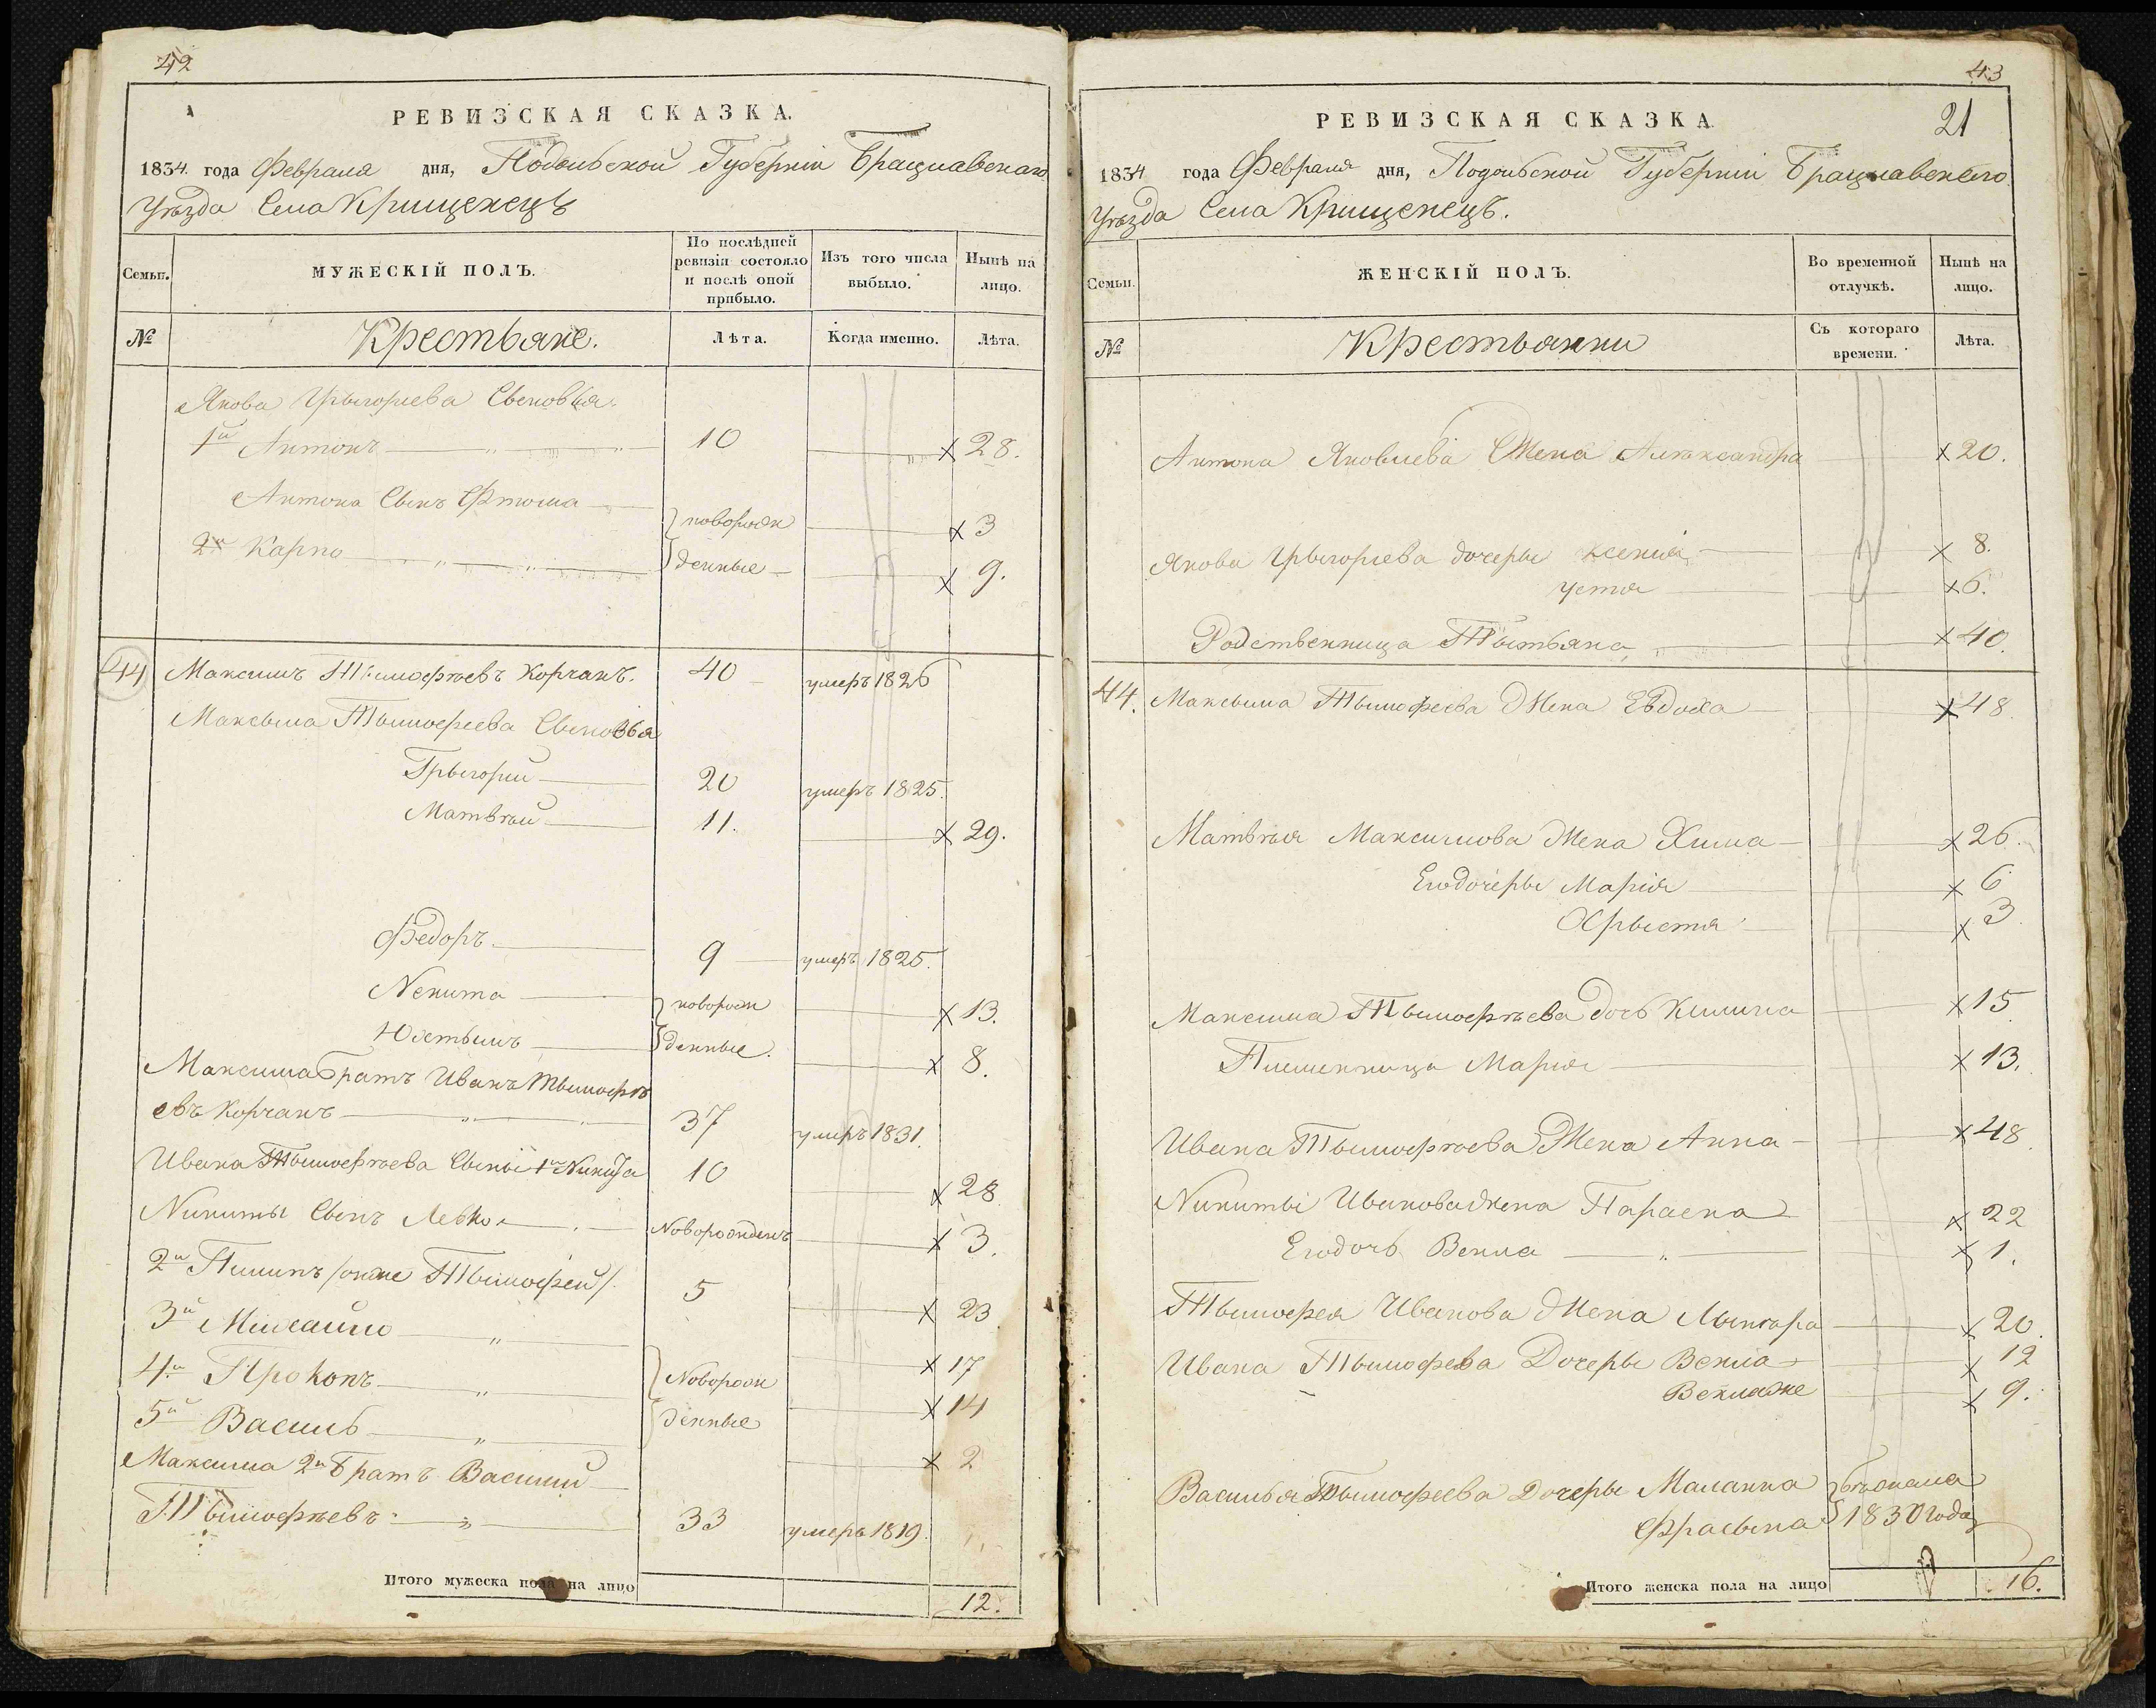 42
РЕВИЗСКАЯ СКАЗКА.
1834. года Февраля дня, Подольской Губерніи Брацлавскаго
Уѣзда Села Крищенецъ
Семьи.
МУЖЕСКІЙ ПОЛЪ.
По послѣдней ревизіи состояло и послѣ оной прибыло.
Изъ того числа выбыло.
Нынѣ на лицо.
№
Крестьяне.
Лѣта.
Когда именно.
Лѣта.
Якова Грыгорiева Сыновья
1й Антонъ 10 х 28.
Антона Сынъ
новорож х 3
2й Карпо денные х 9.
44 Максимъ Тимофѣевъ Корчакъ. 40 умеръ 1826
Максыма Тымофеева Сыновья
Грыгорий 20 умеръ 1825.
Матвѣй 11. х 29.
Федоръ 9 умеръ 1825.
Никита новорож х 13.
Юхтымъ денные. х 8.
Максима Братъ Иванъ Тымофѣ
евъ Корчакъ 37 умеръ 1831.
Ивана Тымофѣева Сыны 1й Никита 10 х 28
Никиты Сынъ Левко Новорожденъ х 3.
2й Пилипъ /онже Тымофей/. 5 х 23
3й Михайло х 17
4й Прокопъ Новорож х 14
5й Василь денные х 2
Максима 2й Братъ Василий
Тымофѣевъ 33 умеръ 1819.
Итого мужеска пола на лицо 12.
43
21
РЕВИЗСКАЯ СКАЗКА.
1834 года Февраля дня, Подольской Губерніи Брацлавскаго
Уѣзда Села Крищенецъ.
Семьи.
ЖЕНСКІЙ ПОЛЪ.
Во временной отлучкѣ.
Нынѣ на лицо.
№
Крестьянки
Съ котораго времени.
Лѣта.
Антона Яковлева Жена Александра х 20.
Якова Грыгорiева дочеры Ксенія х 8.
Устя х 6.
Родственница Тытьяна х 40.
44. Максыма Тымофеева Жена Евдоха х 48.
Матвѣя Максимова Жена Хима х 26.
Его дочеры Марія х 6
Хрыстя х 3
Максима Тымофѣева дочь Килина х 15
Племенница Мария х 13.
Ивана Тымофѣева Жена Анна х 48.
Никиты Иванова жена Параска х 22
Его дочь Векла х 1.
Тымофея Иванова Жена х 20.
Ивана Тымофева Дочеры Векла х 12
Векла же х 9.
Василья Тымофеева Дочеры Маланка бѣжала
Фрасына 1830 года
Итого женска пола на лицо 16.